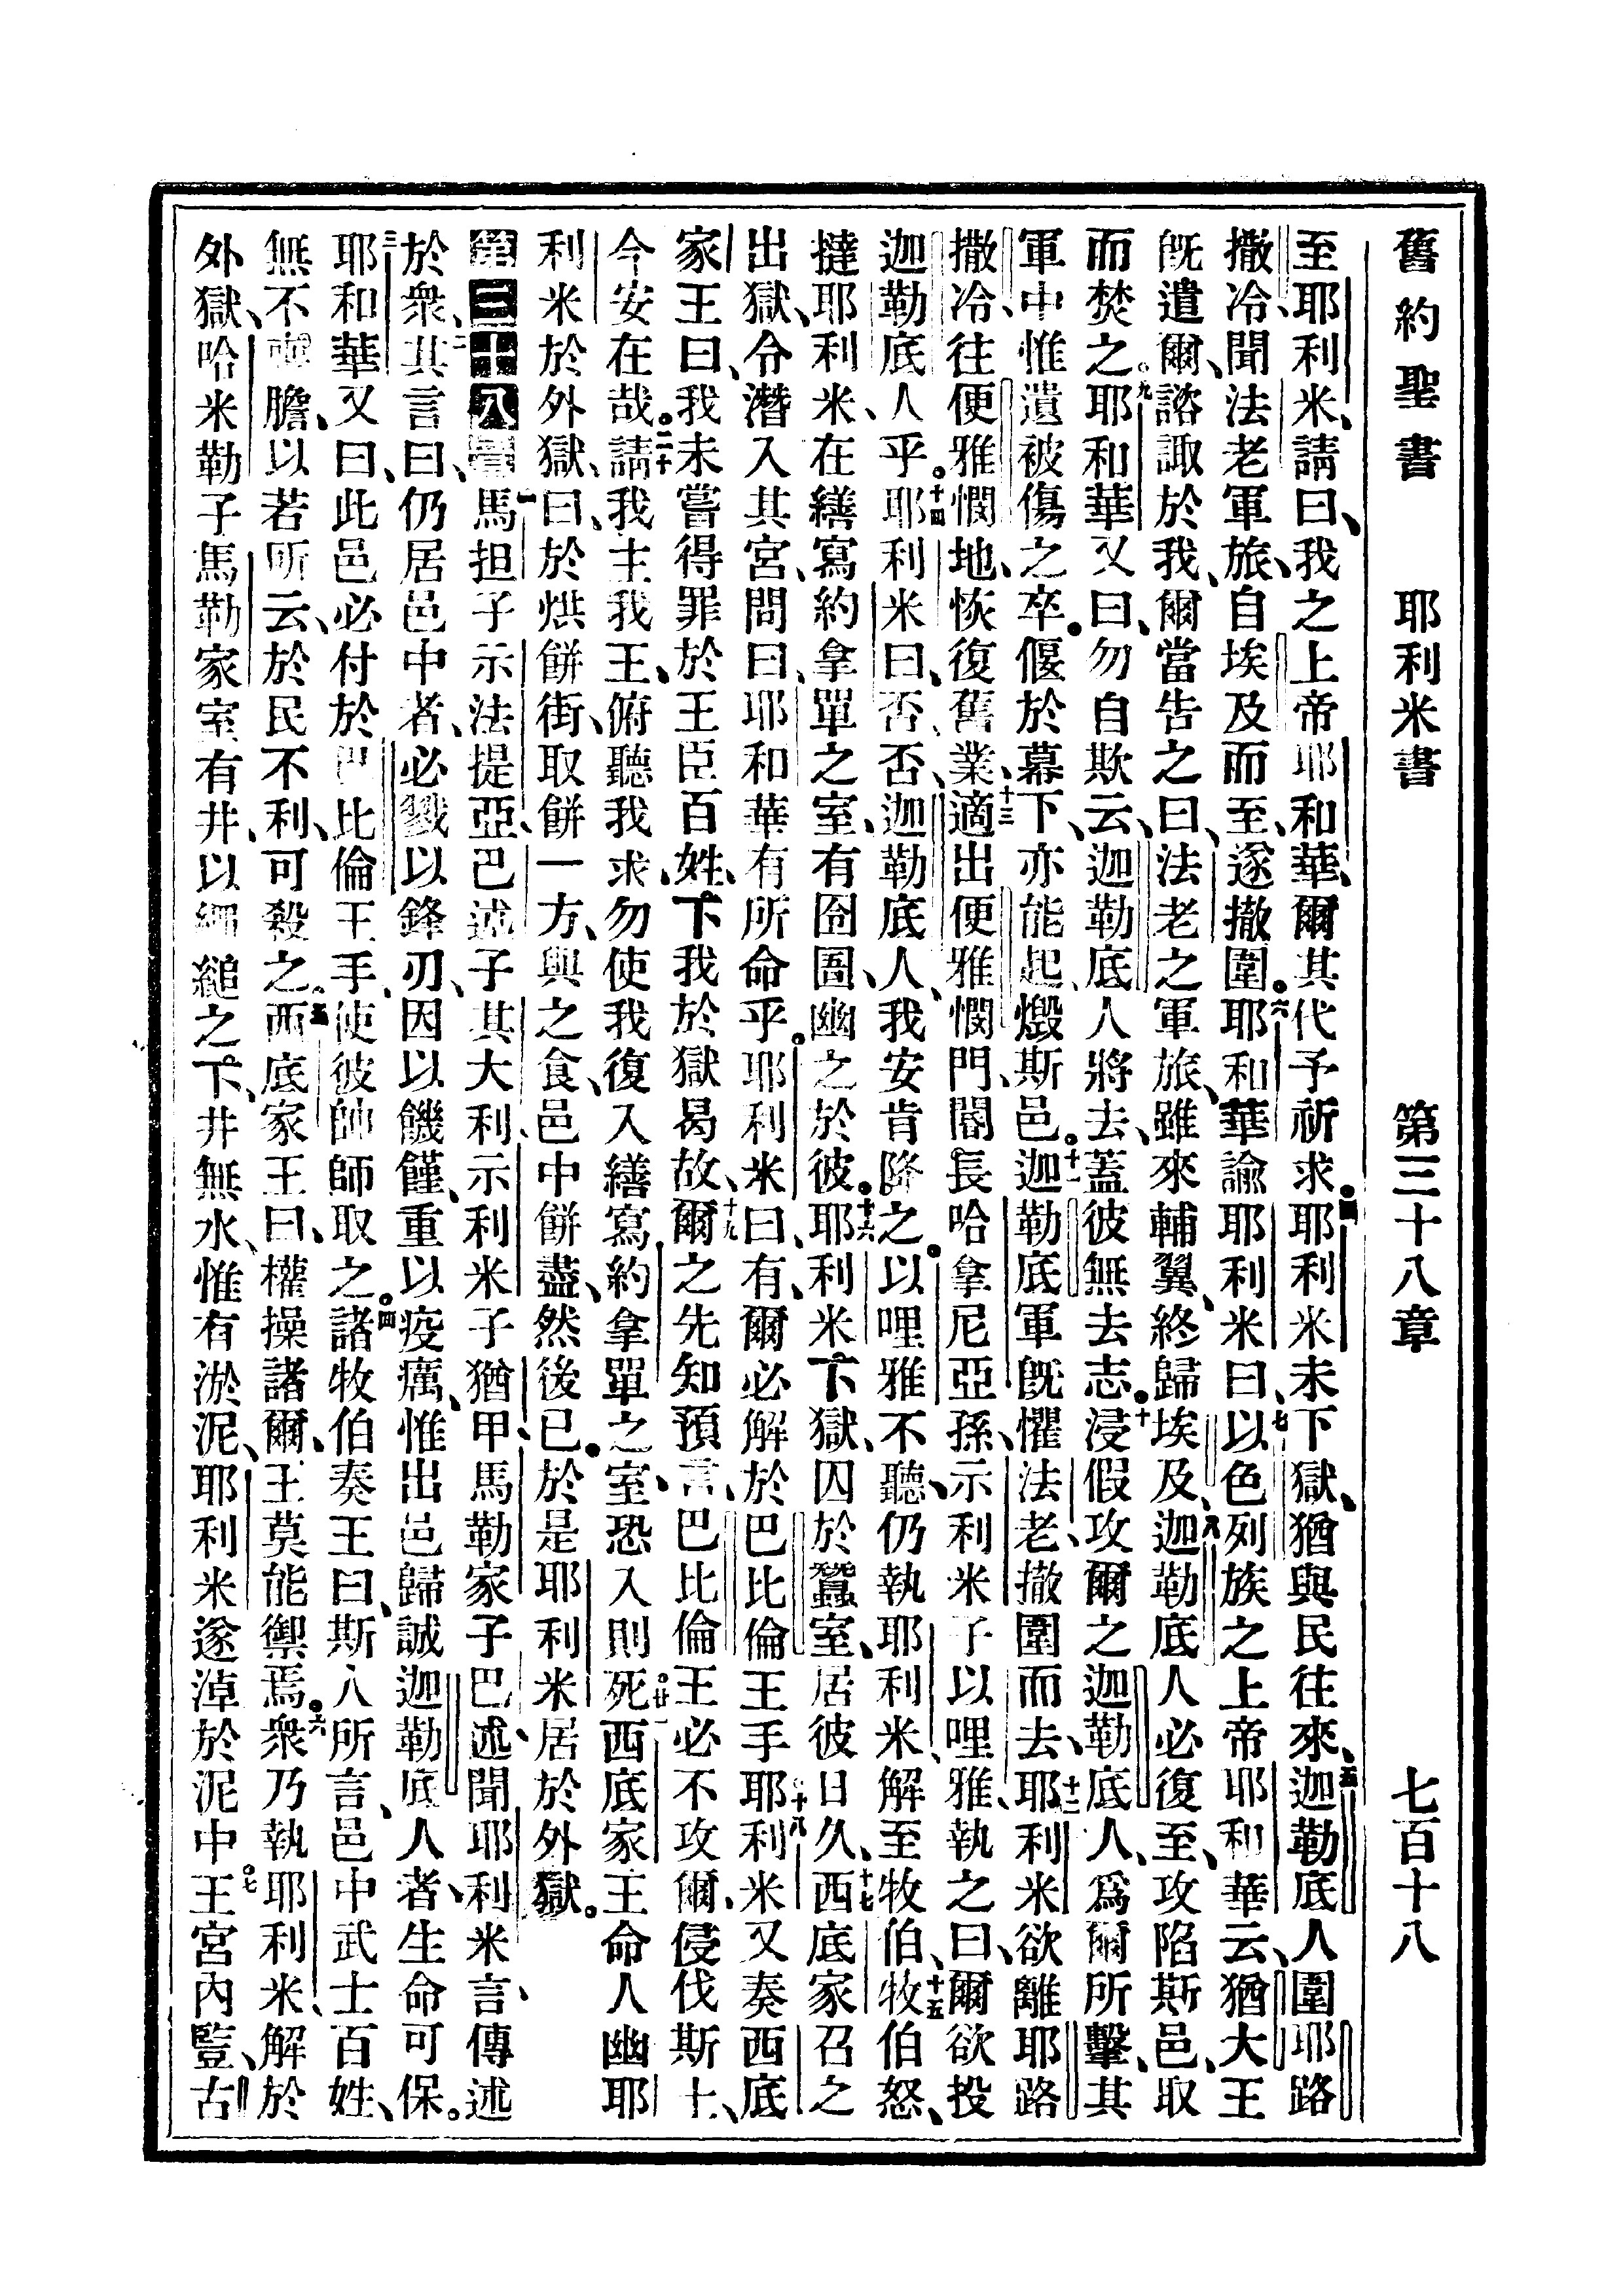 舊約聖書 耶利米書 第三十八章 七百十八
至耶利米、請曰、我之上帝耶和華、爾其代予祈求。四耶利米未下獄、猶與民往來、五迦勒底人圍耶路
撒冷、聞法老軍旅、自埃及而至、遂撤圍。六耶和華諭耶利米曰、七以色列族之上帝耶和華云、猶大王
旣遣爾、諮諏於我、爾當告之曰、法老之軍旅、雖來輔翼、終歸埃及、八迦勒底人必復至、攻陷斯邑、取
而焚之。九耶和華又曰、勿自欺云、迦勒底人將去、蓋彼無去志。十浸假攻爾之迦勒底人、爲爾所擊、其
軍中惟遺被傷之卒。偃於幕下、亦能起、燬斯邑。十一迦勒底軍旣懼法老、撤圍而去、十二耶利米欲離耶路
撒冷、往便雅憫地、恢復舊業、十三適出便雅憫門、閽長哈拿尼亞孫、示利米子以哩雅、執之曰、爾欲投
迦勒底人乎。十四耶利米曰、否、否、迦勒底人、我安肯降之。以哩雅不聽、仍執耶利米、解至牧伯、十五牧伯怒、
撻耶利米、在繕寫約拿單之室、有囹圄、幽之於彼。十六耶利米下獄、囚於蠶室、居彼日久、十七西底家召之
出獄、令潛入其宮、問曰、耶和華有所命乎。耶利米曰、有、爾必解於巴比倫王手。十八耶利米又奏西底
家王曰、我未嘗得罪於王臣百姓、下我於獄曷故、十九爾之先知預言、巴比倫王必不攻爾、侵伐斯土、
今安在哉。二十請我主我王、俯聽我求、勿使我復入繕寫約拿單之室、恐入則死。廿一西底家王命人幽耶
利米於外獄、曰、於烘餅街、取餅一方、與之食、邑中餅盡、然後已。於是耶利米居於外獄。
第三十八章 一馬担子示法提亞、巴述子其大利、示利米子猶甲、馬勒家子巴述、聞耶利米言、傳述
於衆、二其言曰、仍居邑中者、必戮以鋒刃、因以饑饉、重以疫癘、惟出邑歸誠迦勒底人者、生命可保。
三耶和華又曰、此邑必付於巴比倫王手、使彼帥師取之。四諸牧伯奏王曰、斯人所言、邑中武士百姓、
無不喪膽、以若所云、於民不利、可殺之。五西底家王曰、權操諸爾、王莫能禦焉。六衆乃執耶利米、解於
外獄、哈米勒子馬勒家室有井、以繩縋之下、井無水、惟有淤泥、耶利米遂淖於泥中。七王宮內豎、古